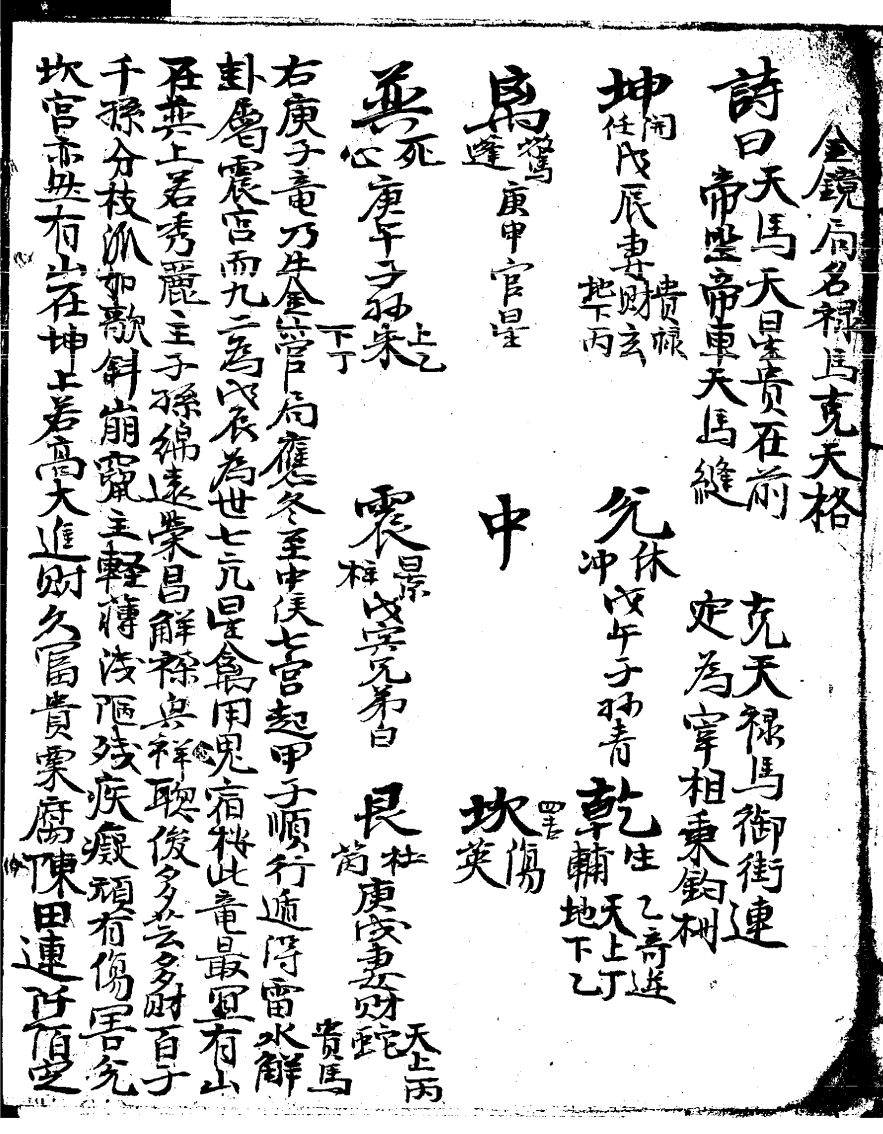 金鏡局名禄馬克天格
詩曰天馬天星貴在前　克天禄馬御街連
帝坐帝車天馬縫　定為宰相秉鈞柄
坤 開任 戊辰妻財玄 貴禄 地下丙
兌 休冲 戊午子孙青
乾 生輔 乙奇逆 天上丁 地下乙
离 驚蓬 庚申官星
中
坎 傷英
巽 死心 庚午子孙朱 上乙 下丁
震 景柱 戊寅兄弟白
艮 杜芮 庚戌妻财蛇 天上丙 貴馬
右庚子竜乃生金 局應冬至中侯七宮起甲子順行遁得雷水解
卦屬震宮而九二為戊辰為世七亢星禽用鬼宿 此竜最宜有山
在巽上若秀麗主子孫綿遠榮昌解禄呉祥聡俊多芸多財百子
千孫分枝派如歌斜崩竄主軽薄浅陋残疾癡頑有傷害兌
坎宮亦然有山在坤上若高大進財久冨貴粟腐陳田連阡陌定